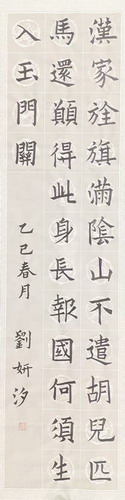 漢家旌旗滿陰山不遣胡兒匹
馬還願得此身長報國何須生
入玉門關
乙巳春月 劉妍汐